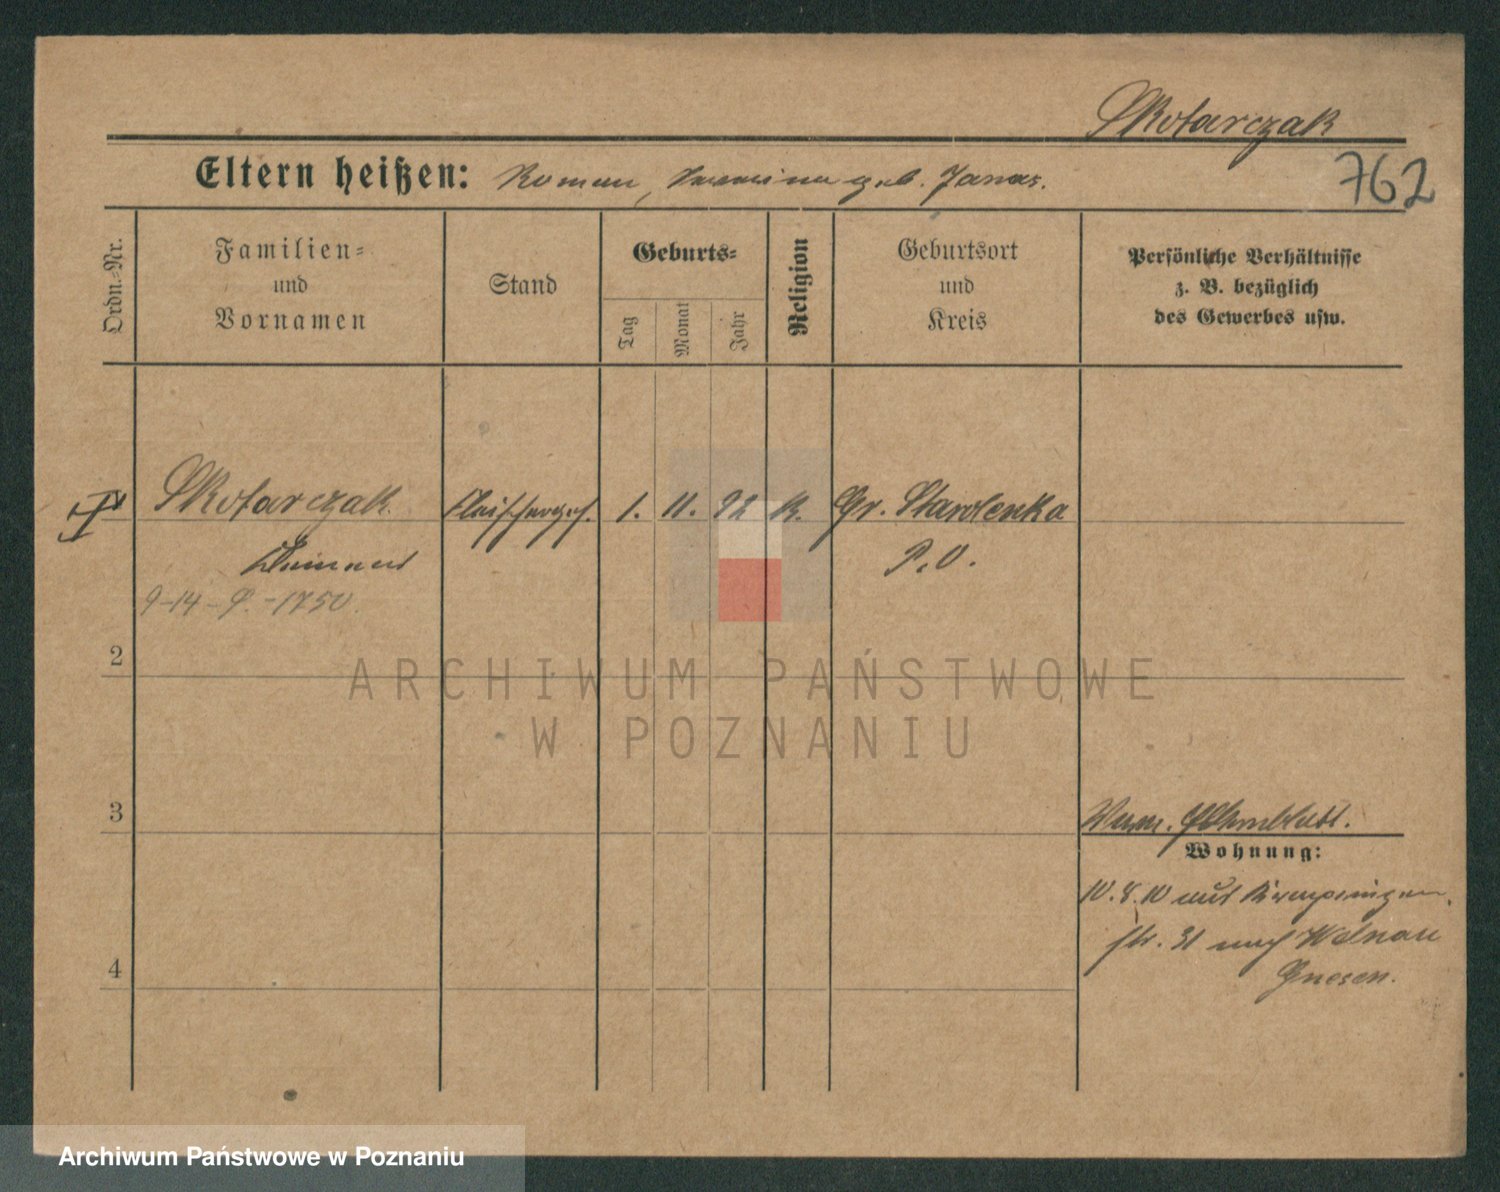 Skotarczak
Eltern heißen: Roman, geb. Janas.
762
Ordn.-Nr.
Familien-
und
Vornamen
Stand
Geburts-
Tag
Monat
Jahr
Religion
Geburtsort
und
Kreis
Persönliche Verhältnisse
z. B. bezüglich
des Gewerbes usw.
Skotarczak Fleischerges. 1. 11. 92 k. Gr. Starolenka
P. O.
9-14-9.-1750.
2
ARCHIWUM PAŃSTWOWE
W POZNANIU
3
Wohnung:
10.8.10 aus
str. 31 nach Welnau
4
Gnesen.
Archiwum Państwowe w Poznaniu